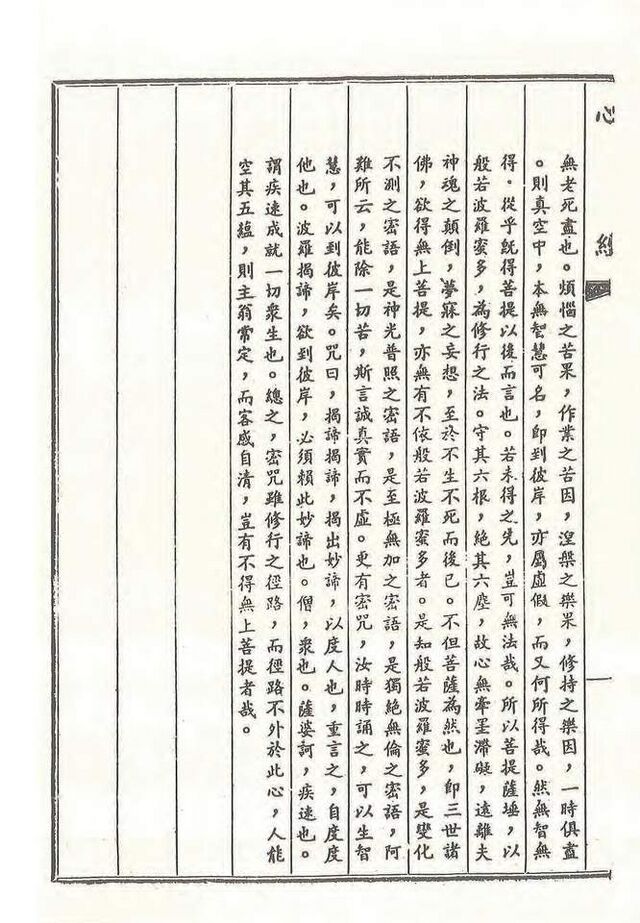 心經
一
無老死盡也。煩惱之苦果，作業之苦因，湼槃之樂果，修持之樂因，一時俱盡
。則真空中，本無智慧可名，即到彼岸，亦屬虛假，而又何所得哉。然無智無
得。從乎既得菩提以後而言也。若未得之先，豈可無法哉。所以菩提薩埵，以
般若波羅蜜多，為修行之法。守其六根，絕其六塵，故心無牽罣滯礙，遠離夫
神魂之顛倒，夢寐之妄想，至於不生不死而後已。不但菩薩為然也，即三世諸
佛，欲得無上菩提，亦無有不依般若波羅蜜多者。是知般若波羅蜜多，是變化
不測之密語，是神光普照之密語，是至極無加之密語，是獨絕無倫之密語，阿
難所云，能除一切苦，斯言誠真實而不虛。更有密咒，汝時時誦之，可以生智
慧，可以到彼岸矣。咒曰，揭諦揭諦，揭出妙諦，以度人也，重言之，自度度
他也。波羅揭諦，欲到彼岸，必須賴此妙諦也。僧，衆也。薩婆訶，疾速也。
謂疾速成就一切衆生也。總之，密咒雖修行之徑路，而徑路不外於此心，人能
空其五蘊，則主翁常定，而客感自清，豈有不得無上菩提者哉。